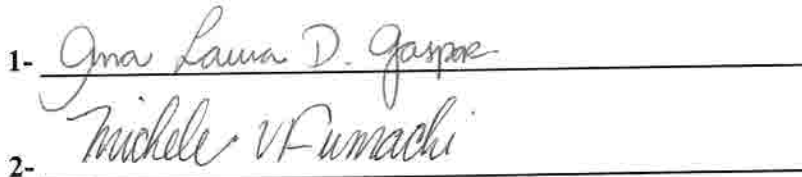 1- Ana Laura D. Gaspar
2- Michele V Fumachi